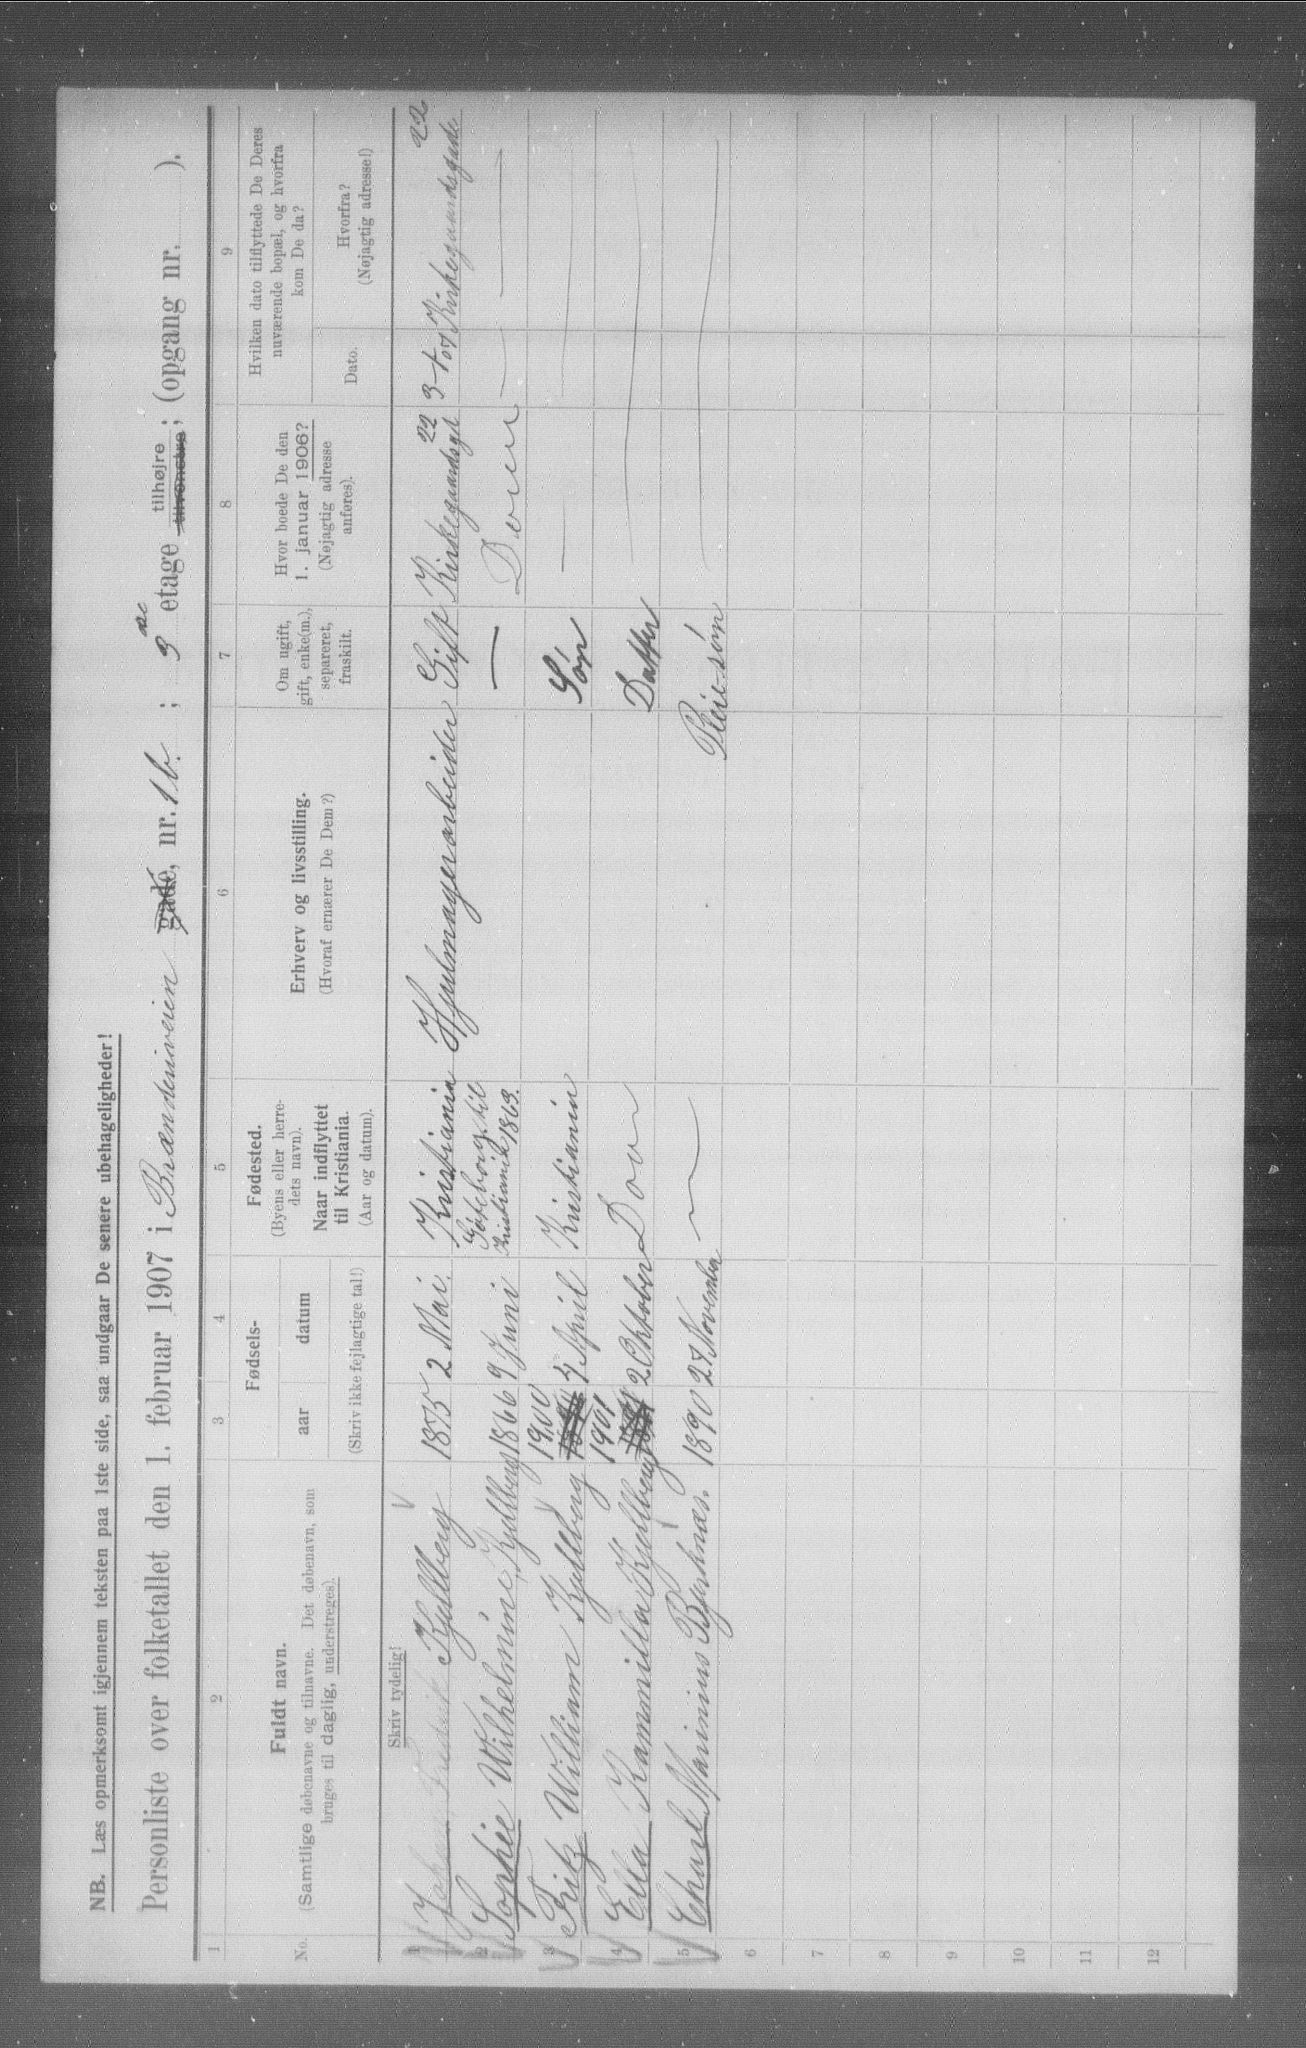 NB. Læs opmerksomt igjennem teksten paa 1ste side, saa undgaar De senere ubehageligheder!
Personliste over folketallet den 1. februar 1907 i Brænderiveien gade, nr. 1 b. ; 3 etage tilhøjre tilvenstre; (opgang nr. ).
1 2 3 4 5 6 7 8 9
No.
Fuldt navn.
(Samtlige døbenavne og tilnavne. Det døbenavn, som
bruges til daglig, understreges).
Fødsels-
aar datum
(Skriv ikke fejlagtige tal!)
Fødested.
(Byens eller herre-
dets navn).
Naar indflyttet
til Kristiania.
(Aar og datum).
Erhverv og livsstilling.
(Hvoraf ernærer De Dem?)
Om ugift,
gift, enke(m.),
separeret,
fraskilt.
Hvor boede De den
1. januar 1906?
(Nøjagtig adresse
anføres).
Hvilken dato tilflyttede De Deres
nuværende bopæl, og hvorfra
kom De da?
Dato.
Hvorfra?
(Nøjagtig adresse!)
Skriv tydelig!
1 Johan Fredrik Kjellberg 1875 2 Mai. Kristiania Hjulmagerarbeider Gift Kirkegaardsgd 22 3 Kirkegaardsgade 22
2 Sophie Wilhelmine Kjellberg 1866 9 Juni Gøteborg, til Kristiania 1869. — Do
3 Fritz William Kjellberg 1900 7 April Kristiania Søn
4 Ella Kammilla Kjellberg 1901 2 Oktober Do Datter
5 Charl Marinius Bjerknæs. 1890 27 November — Pleiesøn
6
7
8
9
10
11
12